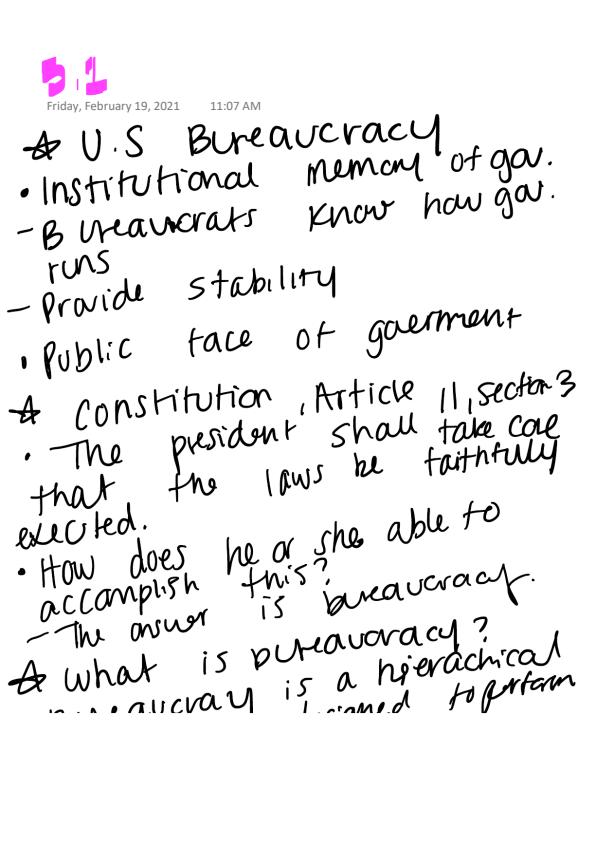 5.1
Friday, February 19, 2021 11:07 AM
☆ U.S Bureaucracy
• Institutional memory of gov.
– Bureaucrats know how gov.
runs
– Provide stability
• Public face of goverment
☆ Constitution, Article II, section 3
• The president shall take care
that the laws be faithfully
executed.
• How does he or she able to
accomplish this?
– The answer is bureaucracy.
☆ what is bureaucracy?
Bureaucracy is a hierachical
designed to perform